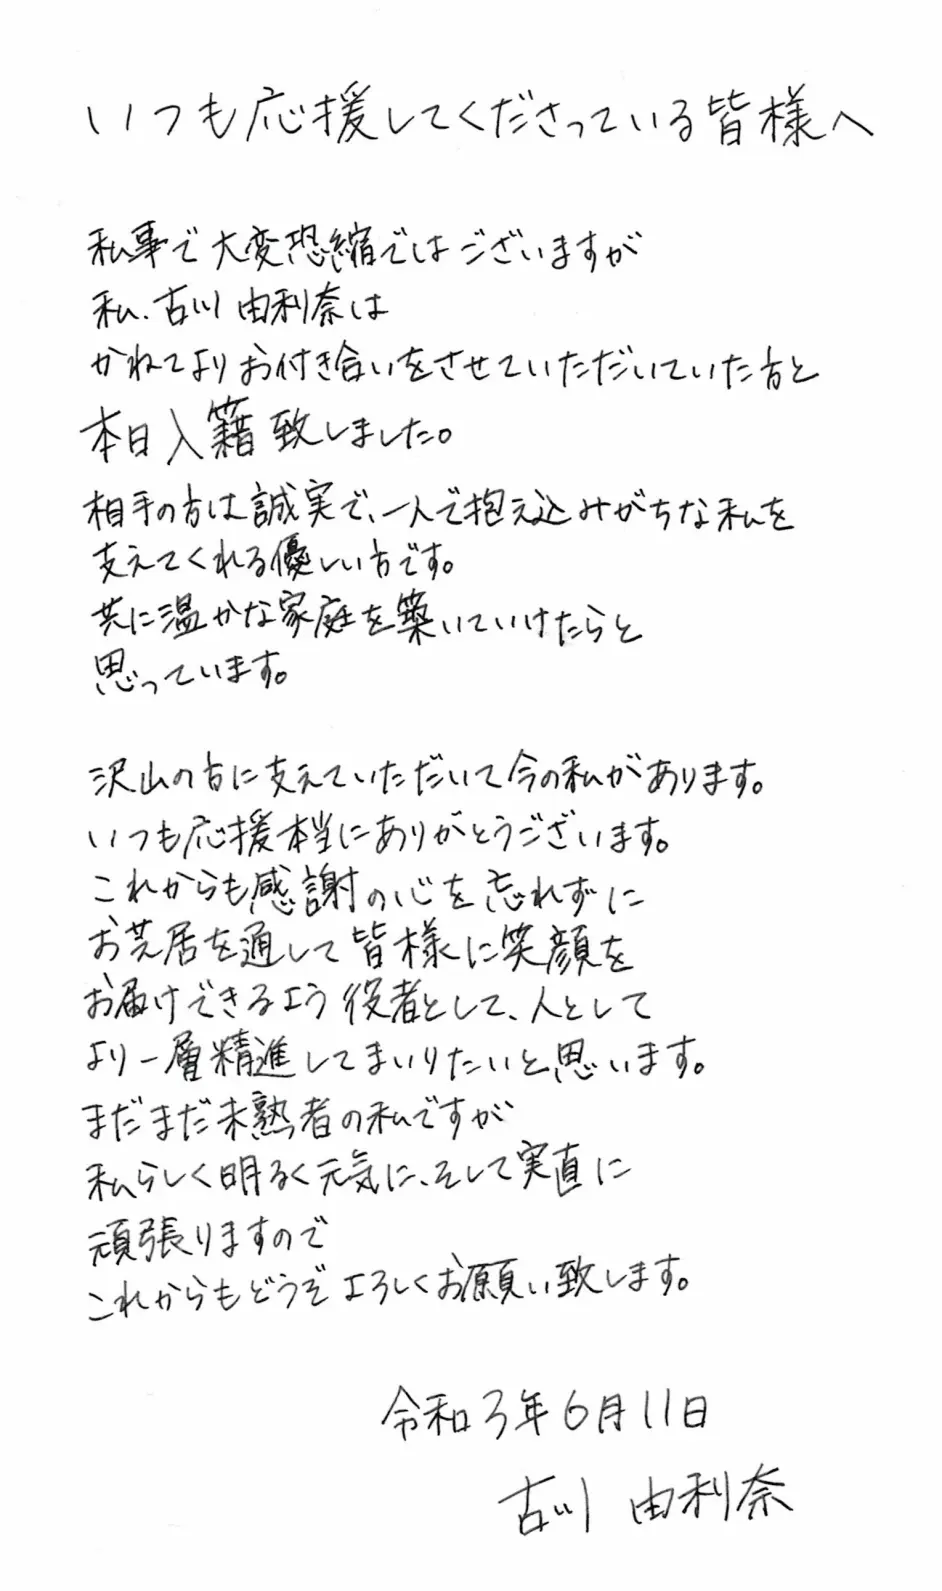 いつも応援してくださっている皆様へ
私事で大変恐縮ではございますが
私、古川 由利奈は
かねてよりお付き合いをさせていただいていた方と
本日入籍致しました。
相手の方は誠実で、一人で抱え込みがちな私を
支えてくれる優しい方です。
共に温かな家庭を築いていけたらと
思っています。
沢山の方に支えていただいて今の私があります。
いつも応援本当にありがとうございます。
これからも感謝の心を忘れずに
お芝居を通して皆様に笑顔を
お届けできるよう役者として、人として
より一層精進してまいりたいと思います。
まだまだ未熟者の私ですが
私らしく明るく元気に、そして実直に
頑張りますので
これからもどうぞよろしくお願い致します。
令和3年6月11日
古川 由利奈